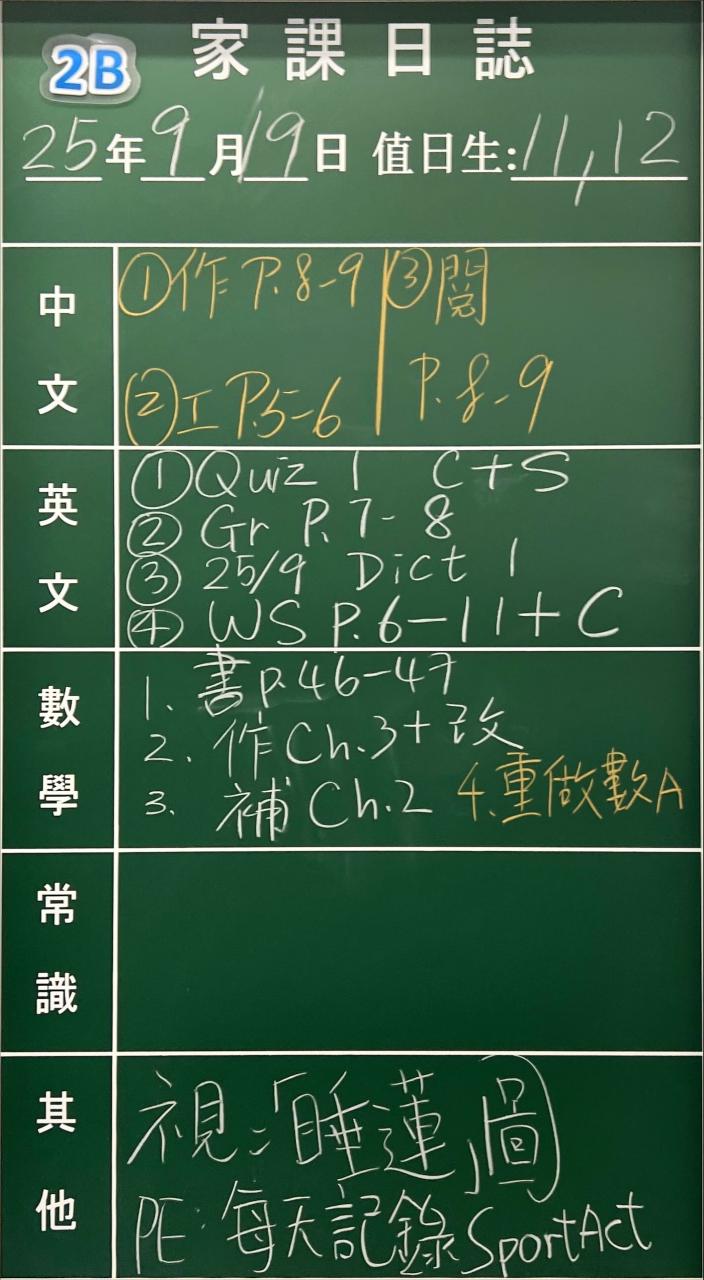 家課日誌
2B
25年9月19日 值日生:11,12
中文
①作 P.8-9
②工 P.5-6
③閱
P.8-9
英文
①Quiz 1 C+S
② Gr P.7-8
③ 25/9 Dict 1
④ WS P.6-11+C
數學
1. 書P.46-47
2. 作Ch.3+改
3. 補 Ch.2 4.重做數A
常識
其他
視:「睡蓮」圖
PE:每天記錄SportAct